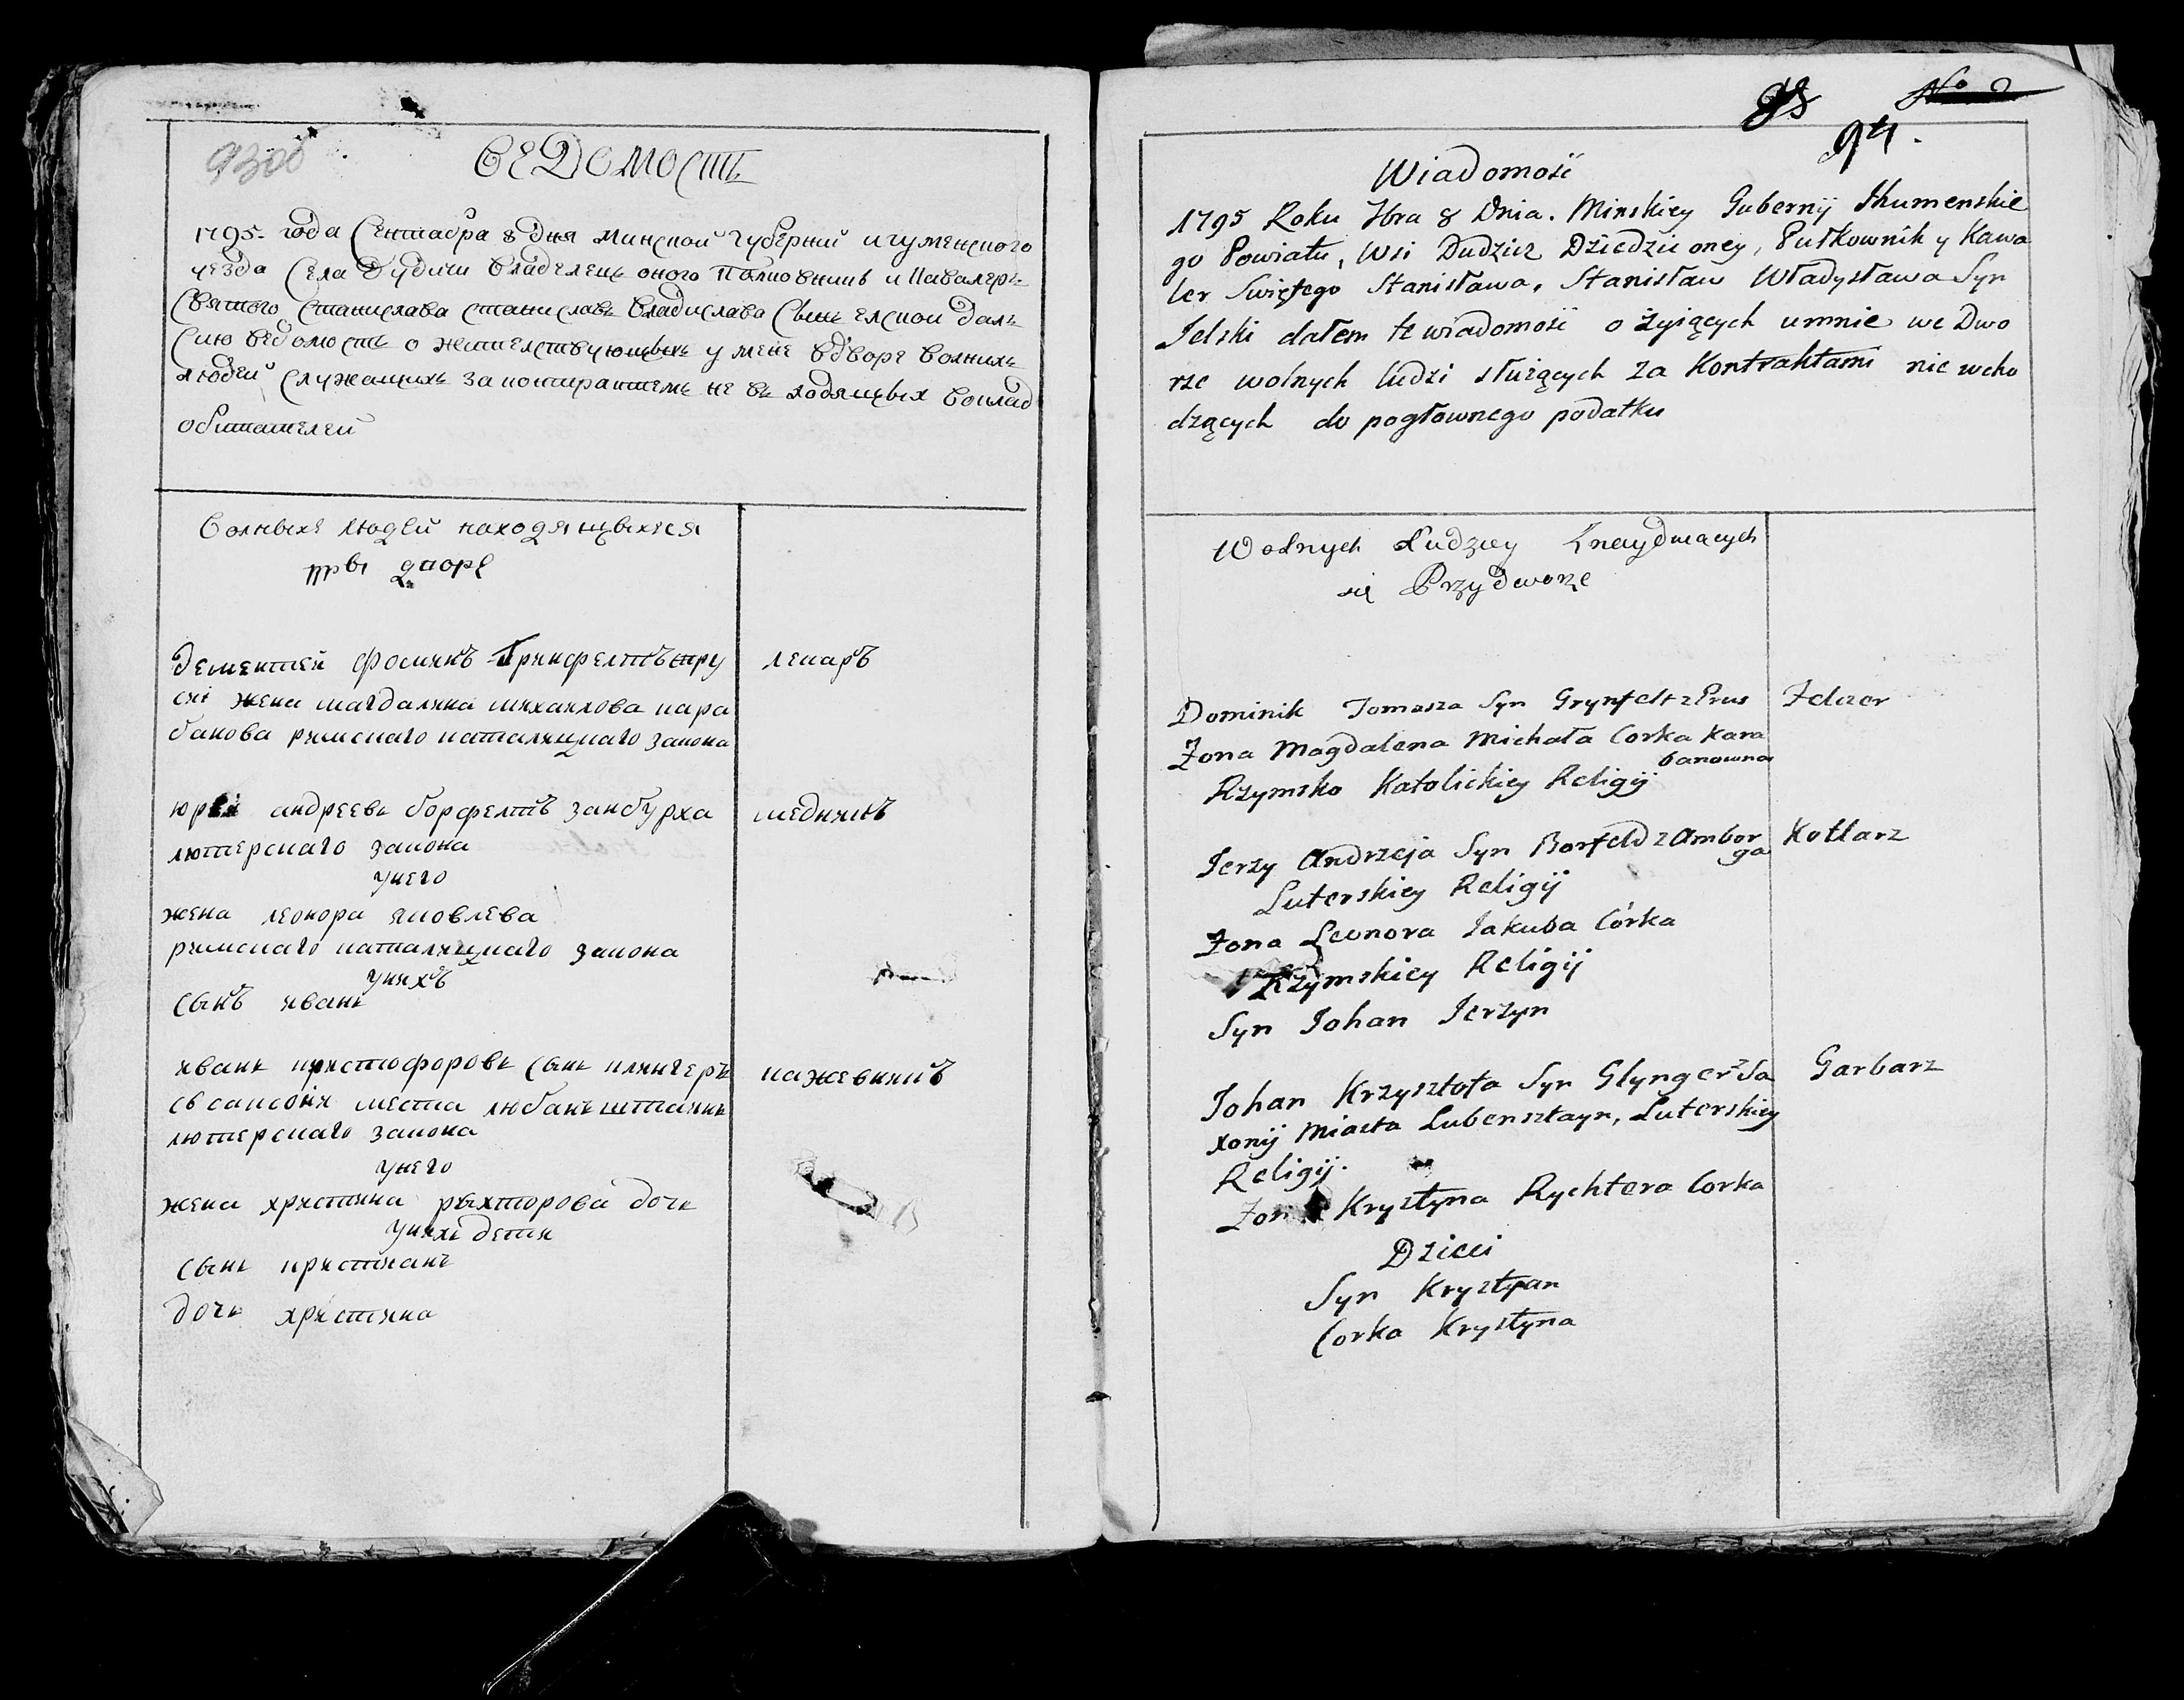 9300
ВЕДОМОСТЬ
1795. года Сентабра 8 дня минской губернии игуменского
уезда Села Дудичи владелец оного Полковникъ и Кавалеръ
Святого Станислава станиславъ владислава Сынъ елской далъ
Сию ведомость о жителствующыхъ у мене вдворе волнихъ
людей служащихъ за контрактемъ не въ ходящых воклад
обитателей
Волныхъ людей находящыхься
пры дворе
дементей фоминъ Гринфелтъ пру
сiи жена магдалина михаилова кара
банова римскаго католицкаго закона
лекаръ
юрей андреевъ борфелтъ замбурха
лютерскаго закона
унего
жена леонора яковлева
римскаго католицкаго закона
унихъ
сынъ иванъ
медникъ
иванъ кристофоровъ сынъ клингеръ
съ саксонiи места любанъштаинъ
лютерскаго закона
унего
жена христина рыхторова дочь
унихъ дети
сынъ кристиянъ
дочь христина
кожевникъ
No 2
94.
Wiadomość
1795 Roku 7bra 8 Dnia. Minskiey Gubernij Ihumenskie
go Powiatu, Wsi Dudzicz Dziedzic oney, Pułkownik y Kawa
ler Swiętego Stanisława, Stanisław Władysława Syn
Jelski dałem te wiadomość o żyiących umnie we Dwo
rze wolnych ludzi służących za Kontraktami nie wcho
dzących do pogłownego podatku
Wolnych Ludziey Znayduiących
się Przydworze
Dominik Tomasza Syn Grynfelt z Prus
Żona Magdalena Michała Corka Kara
banowna
Rzymsko Katolickiey Religij
Felczer
Jerzy Andrzeja Syn Borfeld z Ambor
ga
Luterskiey Religij
Żona Leonora Jakuba Córka
Rzymskiey Religij
Syn Johan Jerzyn
Kotlarz
Johan Krzysztofa Syn Glynger z Sa
xonij Miasta Lubensztayn, Luterskiey
Religij.
Żona Krystyna Rychtera Corka
Dzieci
Syn Krystyan
Corka Krystyna
Garbarz